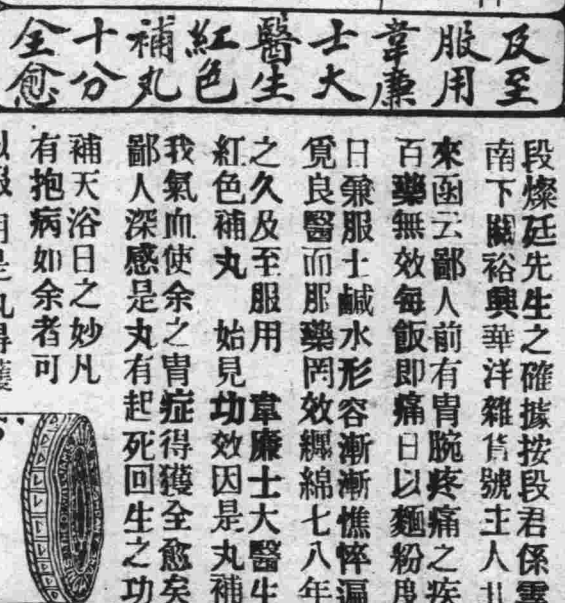 及至
服用
韋廉
士大
醫生
紅色
補丸
十分
全愈
段燦廷先生之確據按段君係雲
南下關裕興華洋雜貨號主人
來函云鄙人前有胃腕疼痛之疾
百藥無效每飯即痛日以麵粉度
日兼服士鹹水形容漸漸憔悴遍
覓良醫而服藥罔效纒綿七八年
之久及至服用 韋廉士大醫生
紅色補丸 始見功效因是丸補
我氣血使余之胃症得獲全愈矣
鄙人深感是丸有起死回生之功
補天浴日之妙凡
有抱病如余者可
是丸得獲